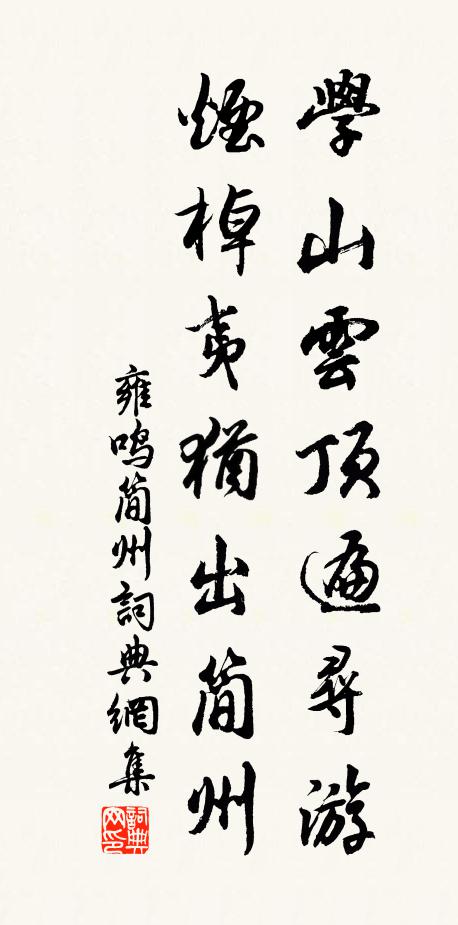 學山雲頂遍尋游
煙棹夷猶出簡州
雍鳴簡州詞典網集
詞典网印